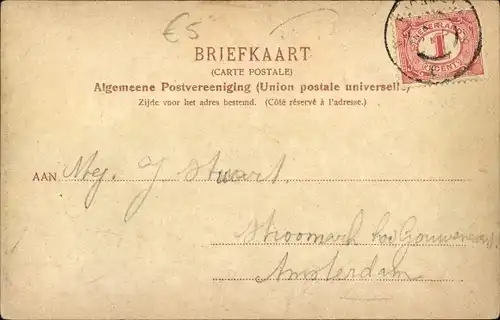 €5
BRIEFKAART
(CARTE POSTALE)
Algemeene Postvereeniging (Union postale universelle)
Zijde voor het adres bestemd. (Côté réservé à l'adresse.)
NEDERLAND
1
CENT
AAN Mej. J Stuart.
Amsterdam